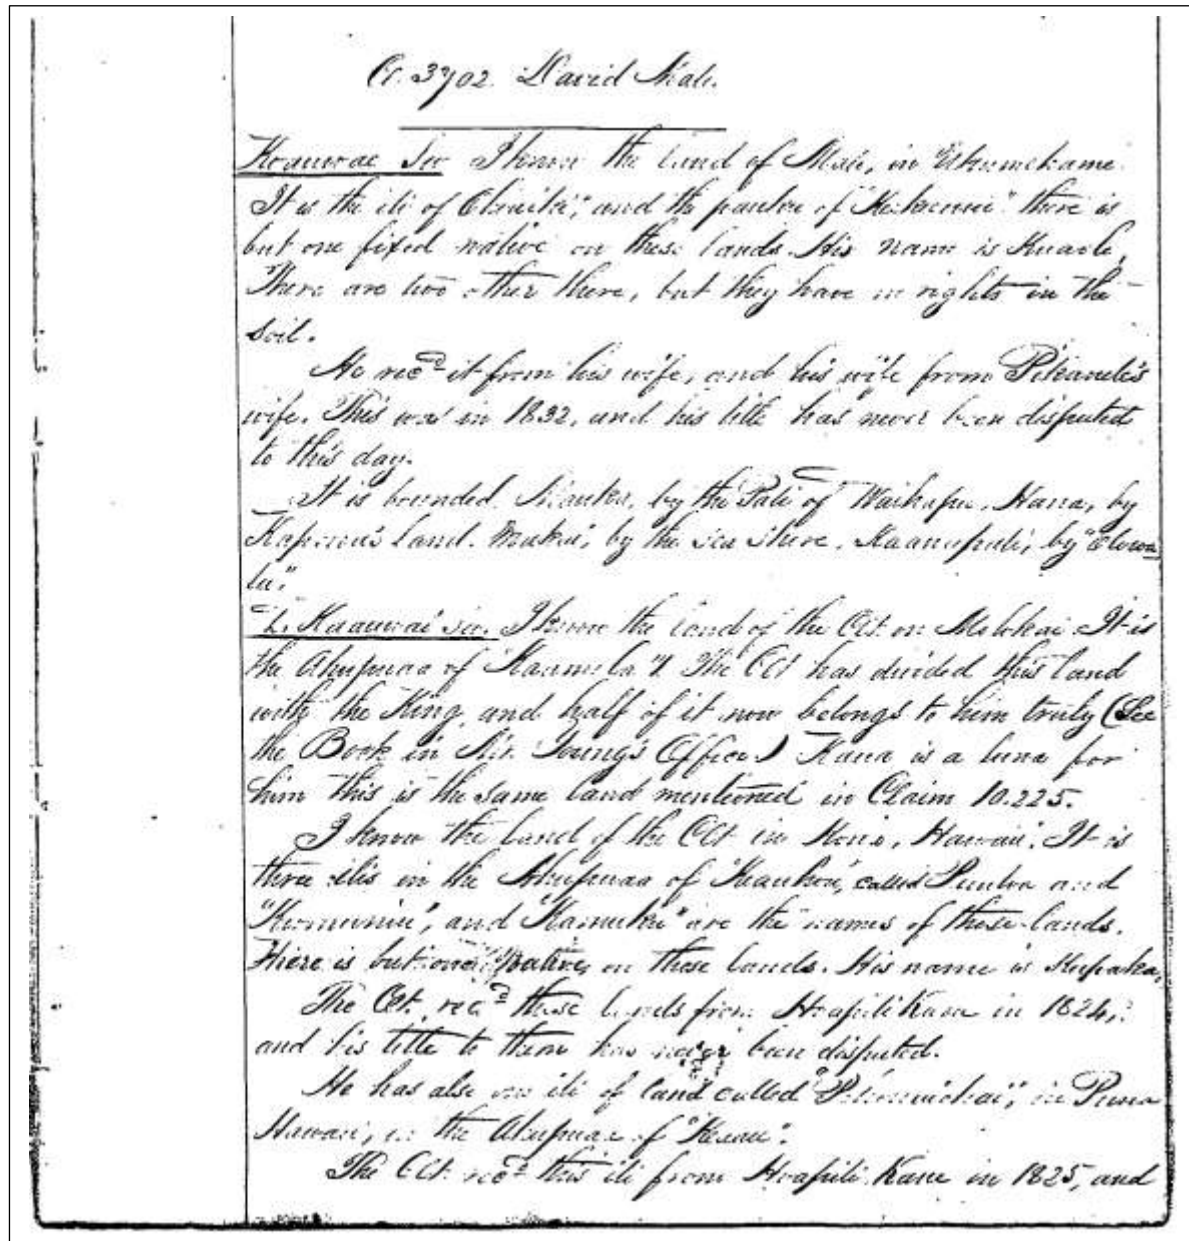 Cl. 3702. David Malo.
Kaauwae Sw. I know the land of Malo, in Ukumehame.
It is the ili of Ohaiki," and the pauku of there is
but one fixed native on these lands. His name is
There are two other there, but they have no rights in the
soil.
He recd it from his wife, and his wife from Pikanele's
wife. This was in 1832, and his title has never been disputed
to this day.
It is bounded Mauka, by the Pali of Waikapu, Hana, by
land. Makai, by the sea shore, Kaanapali, by "Olowa
lu."
Z. Kaauwai sw. I know the land of the Clt. on Molokai. It is
the Ahupuaa of The Clt has divided this land
with the King, and half of it now belongs to him truly (See
the Book in Mr. Young's Office.) Kana is a luna for
him this is the same land mentioned in Claim 10.225.
I know the land of the Clt. in Kona, Hawaii. It is
three ilis in the Ahupuaa of Keauhou, called Puuloa and
and "Kamuku" are the names of these lands.
There is but one native on these lands. His name is Kupaka,
The Clt. recd these lands from Hoapili Kane in 1824,
and his title to them has never been disputed.
He has also an ili of land called in Puna
Hawaii, in the Ahupuaa of "Keaau".
The Clt. recd this ili from Hoapili Kane in 1825, and